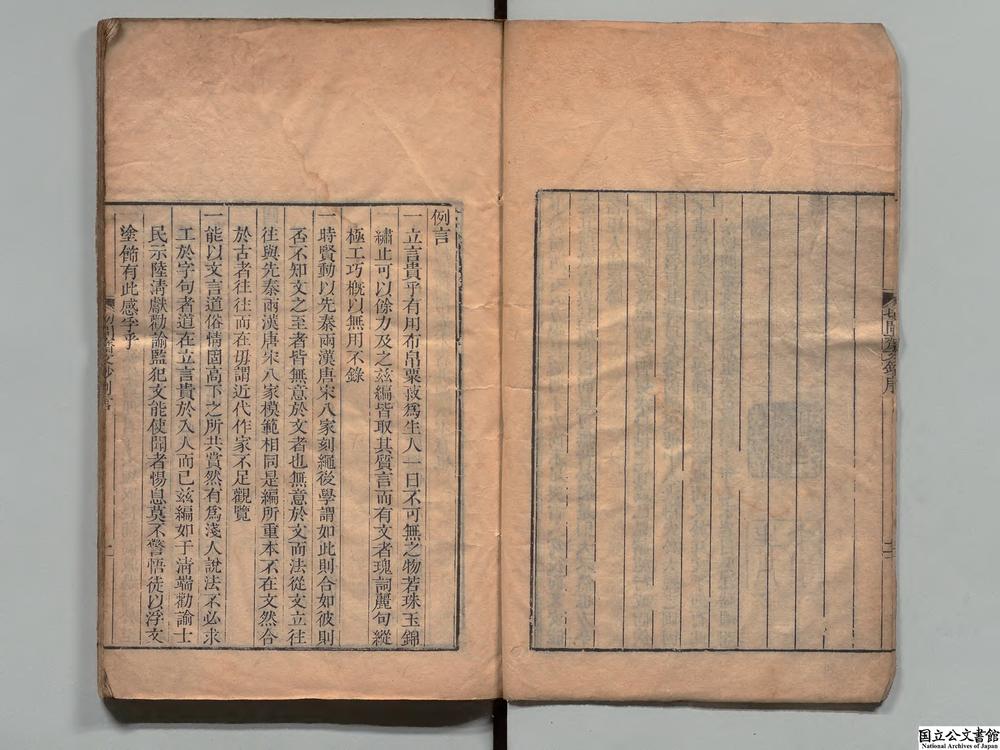 例言
一立言貴乎有用布帛粟菽爲生人一日不可無之物若珠玉錦
繡止可以餘力及之玆編皆取其質言而有文者瑰詞麗句縱
極工巧槪以無用不錄
一時賢動以先秦兩漢唐宋八家刻繩後學謂如此則合如彼則
否不知文之至者皆無意於文者也無意於文而法從文立往
往與先秦兩漢唐宋八家模範相同是編所重本不在文然合
於古者往往而在毋謂近代作家不足觀覽
一能以文言道俗情固高下之所共賞然有爲淺人說法不必求
工於字句者道在立言貴於入人而已玆編如于淸端勸諭士
民示陸淸獻勸諭監犯文能使聞者惕息莫不警悟徒以浮文
塗飾有此感孚乎
國立公文書館
National Archives of Japan